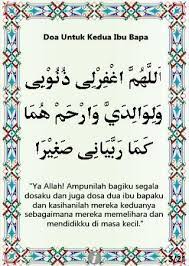 Doa Untuk Kedua Ibu Bapa
اَللّٰهُمَّ اغْفِرْلِى ذُنُوْبِى
وَلِوَالِدَيَّ وَارْحَمْ هُمَا
كَمَا رَبَّيَانِى صَغِيْرًا
"Ya Allah! Ampunilah bagiku segala
dosaku dan juga dosa dua ibu bapaku
dan kasihanilah mereka keduanya
sebagaimana mereka memelihara dan
mendidikku di masa kecil."